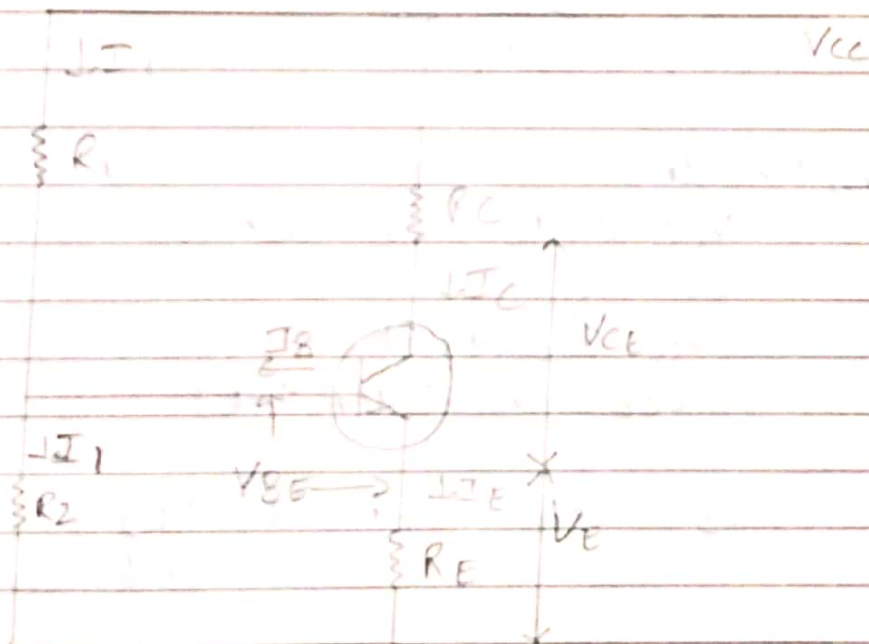 VCC
↓I
R1
RC
↓IC
IB
VCE
↓I1
VBE
↓IE
R2
VE
RE